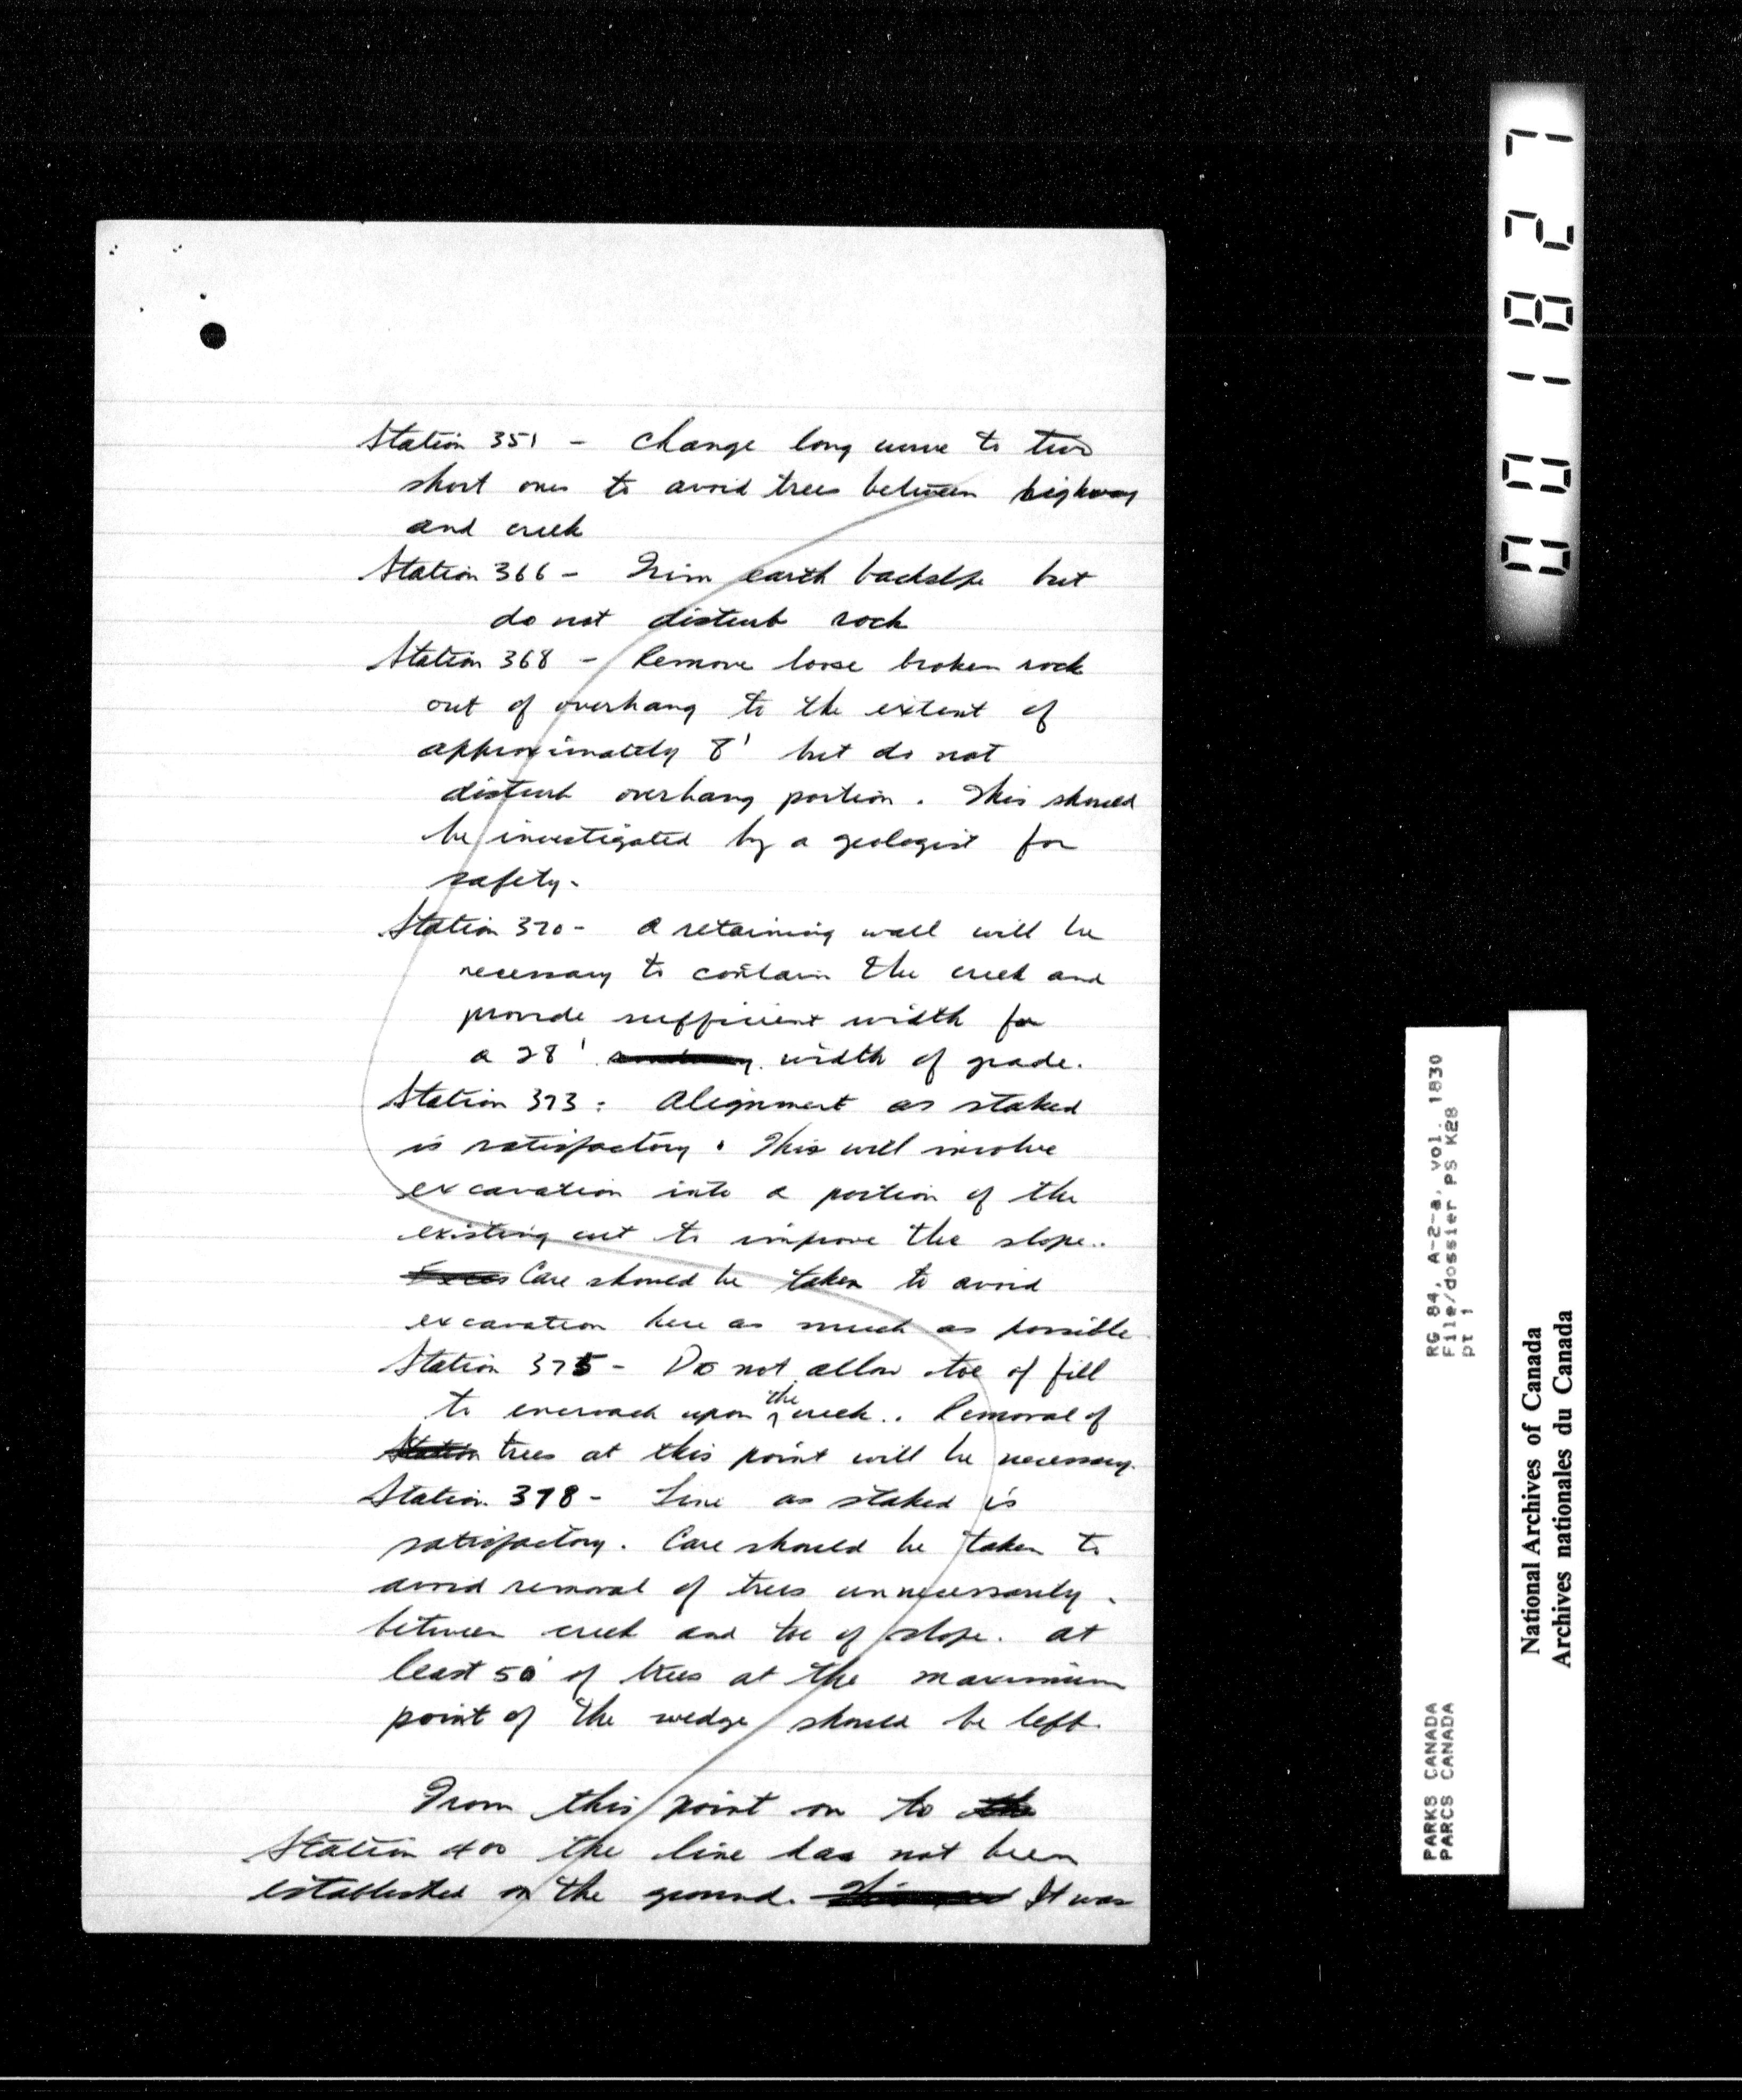 Station 351 - Change long curve to two
short ones to avoid trees between highway
and creek
Station 366 - Trim earth backslope but
do not disturb rock
Station 368 - Remove loose broken rock
out of overhang to the extent of
approximately 8' but do not
disturb overhang portion. This should
be investigated by a geologist for
safety.
Station 370 - A retaining wall will be
necessary to contain the creek and
provide sufficient width for
a 28' width of grade.
Station 373: Alignment as staked
is satisfactory. This will involve
excavation into a portion of the
existing cut to improve the slope.
Care should be taken to avoid
excavation here as much as possible
Station 375 - Do not allow toe of fill
to encroach upon the creek. Removal of
Station trees at this point will be necessary.
Station 378 - Line as staked is
satisfactory. Care should be taken to
avoid removal of trees unnecessarily.
between creek and toe of slope. At
least 50' of trees at the maximum
point of the wedge should be left.
From this point on to the
Station 400 the line has not been
established on the ground. It was
001827
RG 84, A-2-a, vol. 1830
File/dossier PS K28
pt 1
PARKS CANADA
PARCS CANADA
National Archives of Canada
Archives nationales du Canada